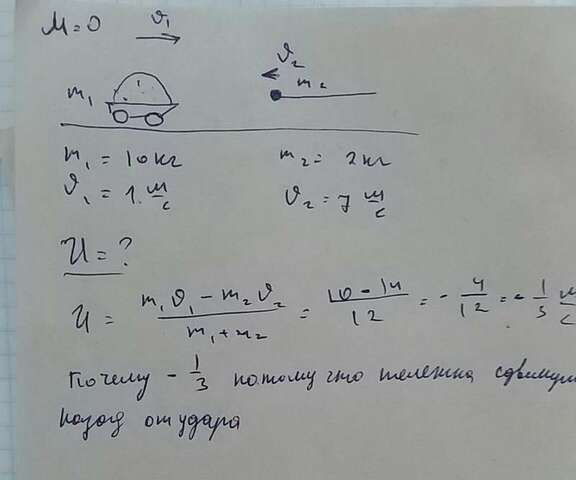 μ=0 ϑ₁
ϑ₂
m₁ m₂
m₁ = 10 кг m₂ = 2 кг
ϑ₁ = 1 м/с ϑ₂ = 7 м/с
U = ?
U = (m₁ϑ₁ - m₂ϑ₂)/(m₁+m₂) = (10-14)/12 = -4/12 = -1/3 м/с
Почему -1/3 потому что тележка сдвинул
назад от удара